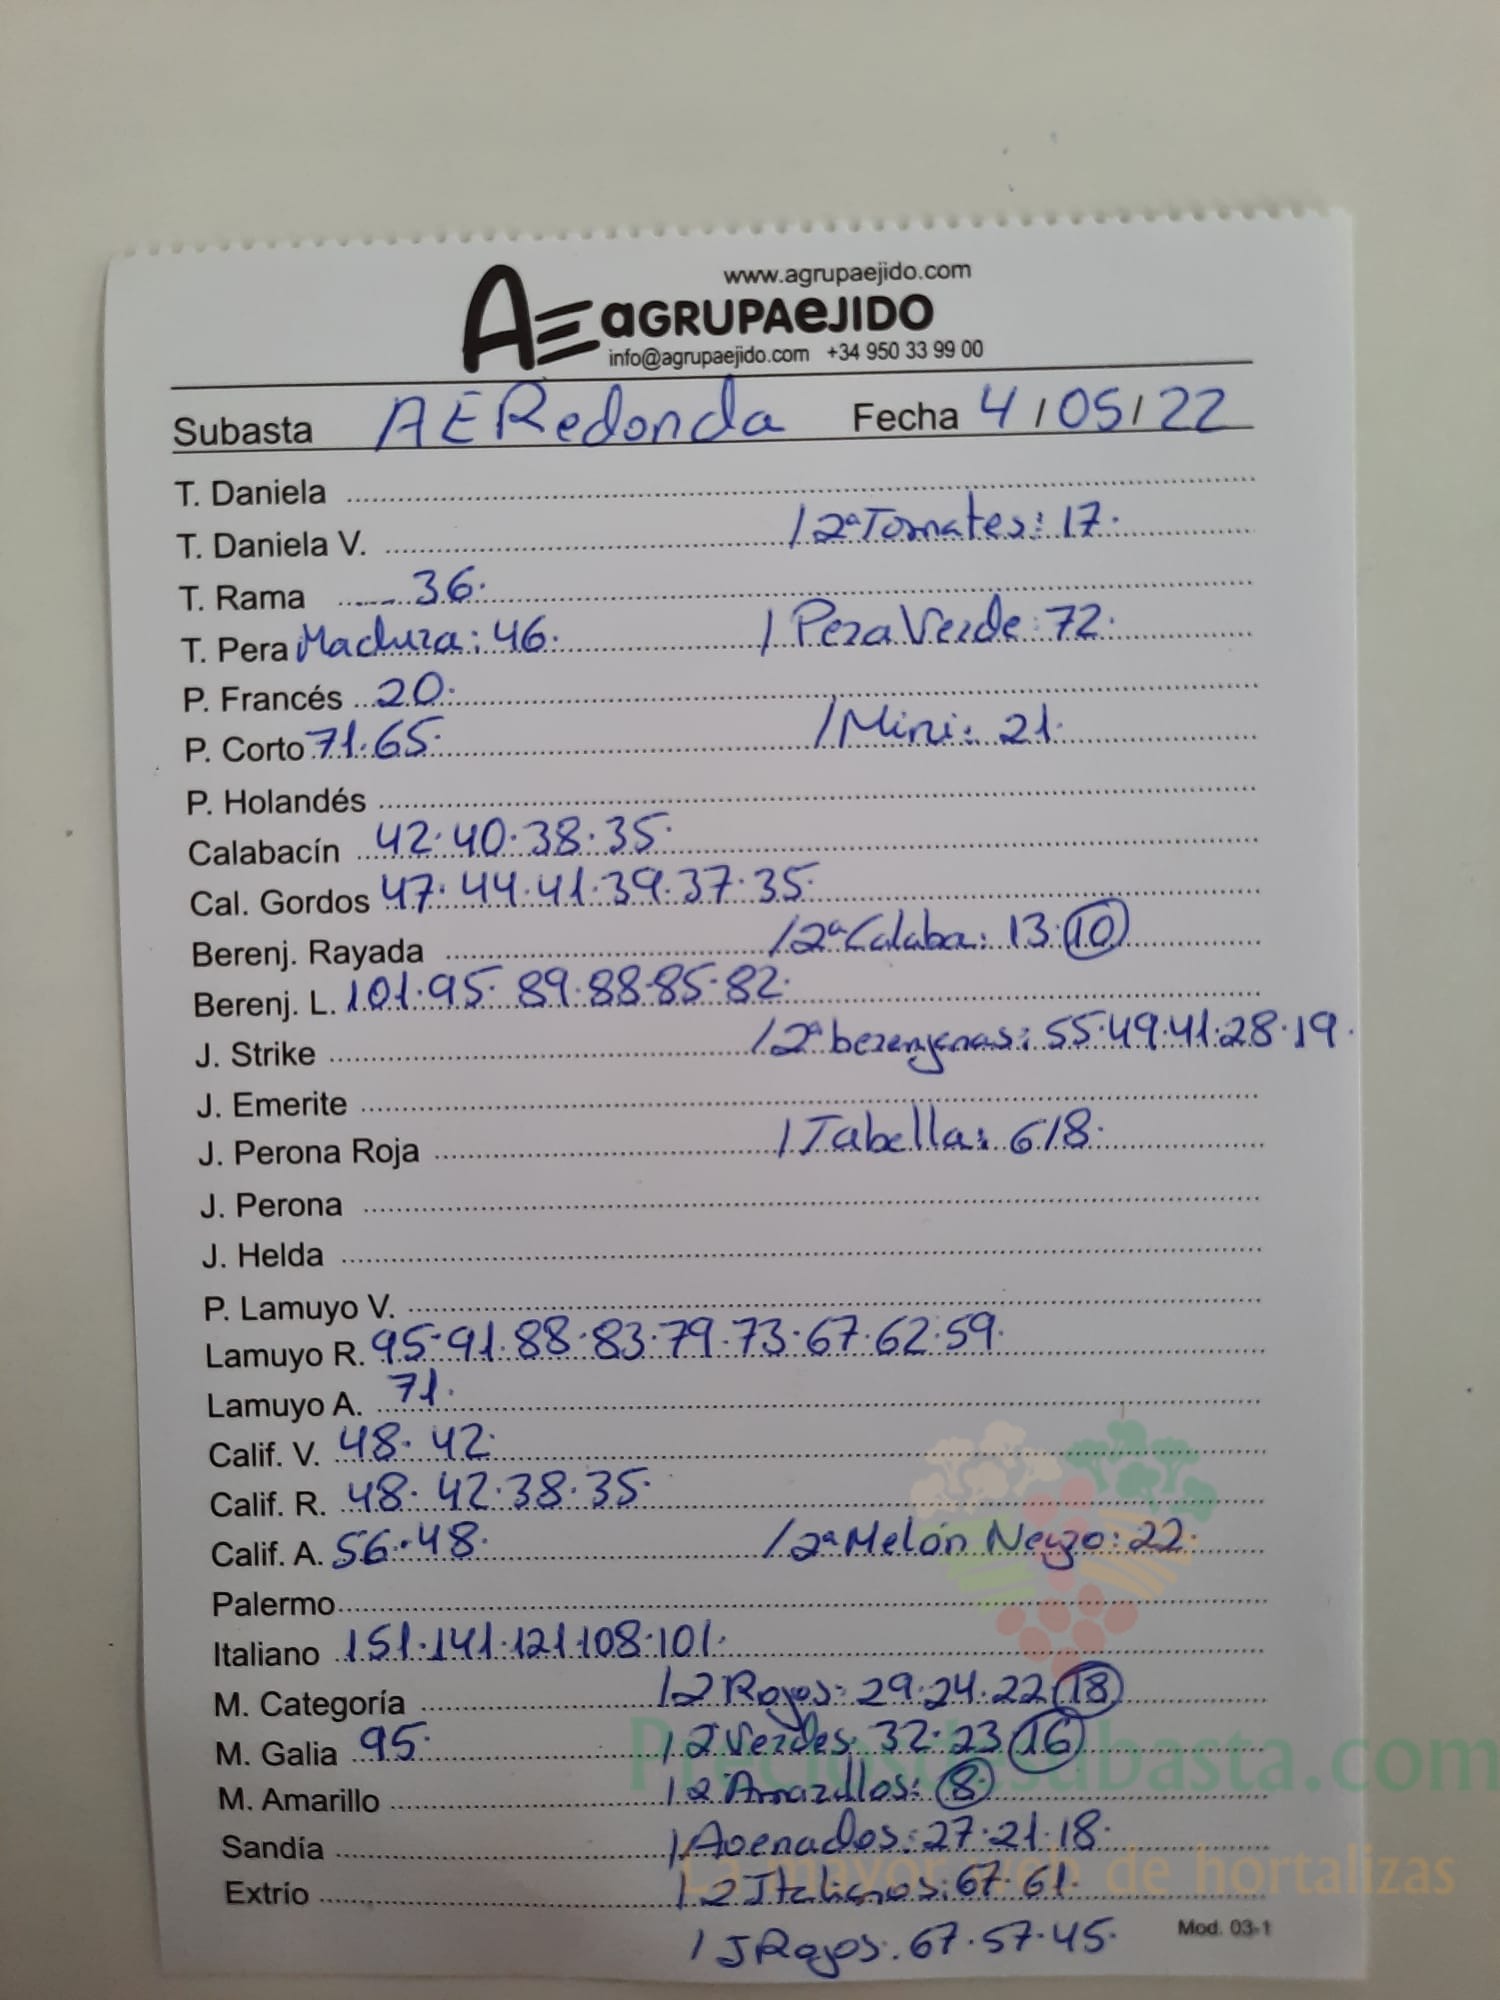 www.agrupaejido.com
AE aGRUPAeJIDO
info@agrupaejido.com +34 950 33 99 00
Subasta AERedonda Fecha 4/05/22
T. Daniela
T. Daniela V. /2ªTomates: 17.
T. Rama 36.
T. Pera Madura: 46. / Pera Verde: 72.
P. Francés 20.
P. Corto 71.65. /Mini: 21.
P. Holandés
Calabacín 42.40.38.35.
Cal. Gordos 47.44.41.39.37.35.
Berenj. Rayada /2ªCalaba: 13.10
Berenj. L. 101.95.89.88.85.82.
J. Strike /2ª berenjenas: 55.49.41.28.19.
J. Emerite
J. Perona Roja /Tabella: 618.
J. Perona
J. Helda
P. Lamuyo V.
Lamuyo R. 95.91.88.83.79.73.67.62.59.
Lamuyo A. 71.
Calif. V. 48.42.
Calif. R. 48.42.38.35.
Calif. A. 56.48. /2ªMelón Negro: 22.
Palermo
Italiano 151.141.121.108.101.
M. Categoría /2 Rojos: 29.24.22.18
M. Galia 95. /2 Verdes: 32.23.16
M. Amarillo /2 Amarillos: 8
Sandía /Asenados: 27.21.18.
Extrío /2 Italianos: 67.61.
/J Rojos: 67.57.45.
Mod. 03-1
Preciosdesubasta.com
La mayor web de hortalizas